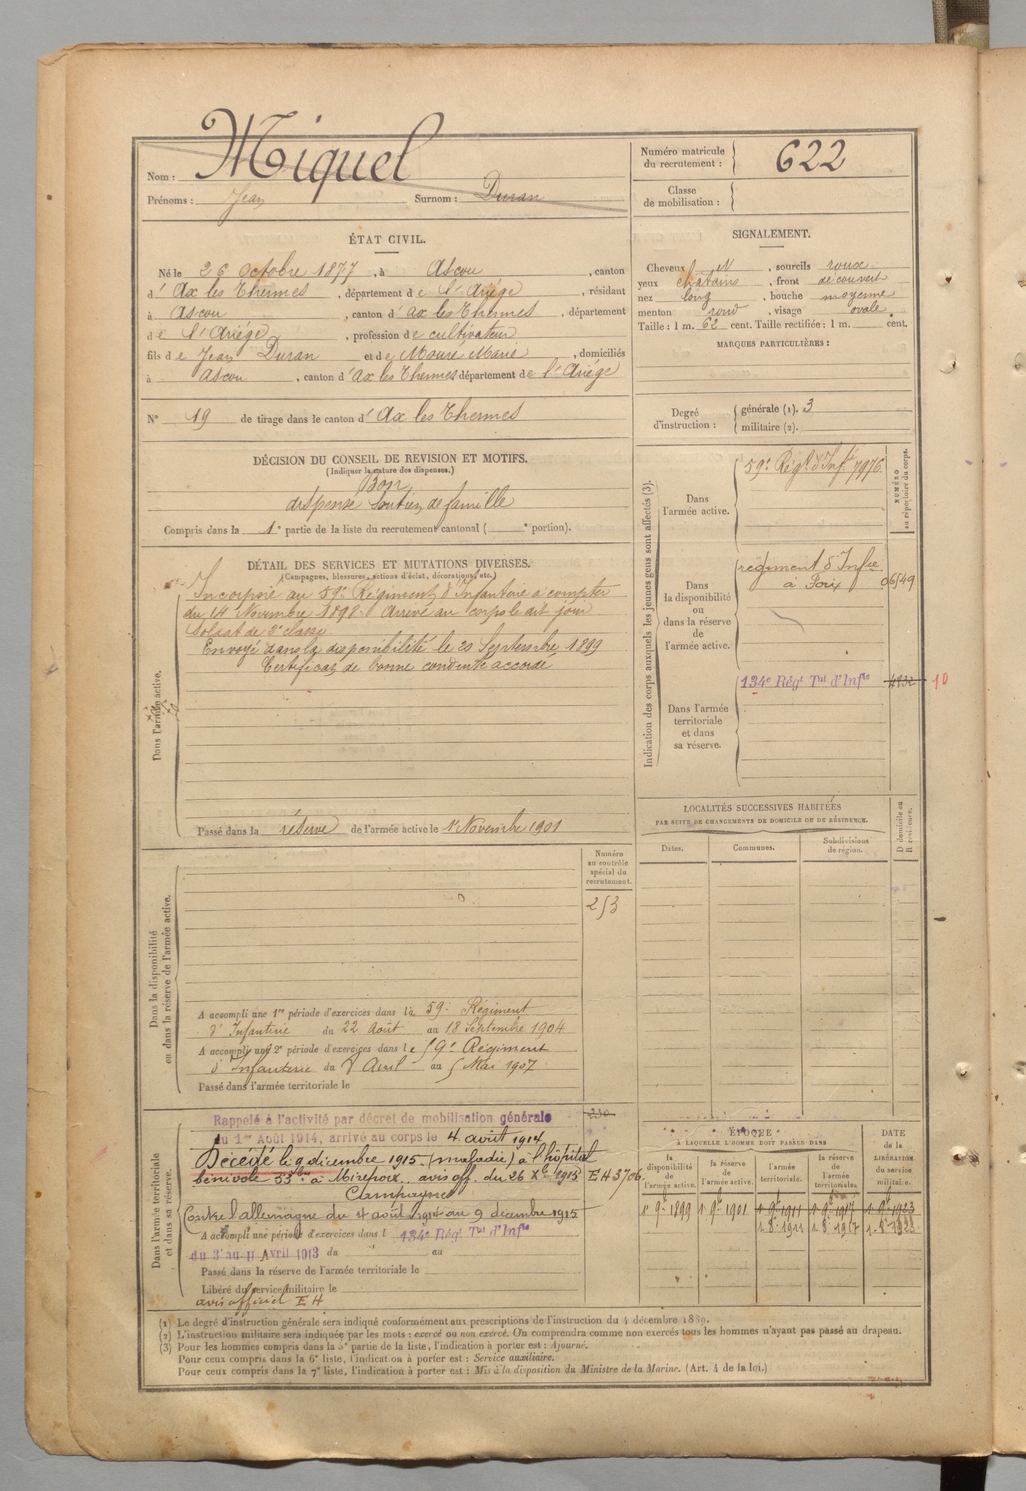 Nom : Miquel
Prénoms : Jean Surnom : Duran
Numéro matricule
du recrutement : 622
Classe
de mobilisation :
ÉTAT CIVIL.
Né le 26 octobre 1877, à Ascou, canton
d' Ax les Thermes, département de l'Ariège, résidant
à Ascou, canton d' ax les Thermes, département
de l'Ariége, profession de cultivateur
fils de Jean Duran et de Mouré Marie, domiciliés
à Ascou, canton d' Ax les Thermes département de l'Ariége
N° 19 de tirage dans le canton d' Ax les Thermes
SIGNALEMENT.
Cheveux, sourcils roux
yeux chatains, front découvert
nez long, bouche moyenne
menton rond, visage ovale.
Taille : 1 m. 62 cent. Taille rectifiée : 1 m. cent.
MARQUES PARTICULIÈRES :
Degré
d'instruction :
générale (1). 3
militaire (2).
DÉCISION DU CONSEIL DE REVISION ET MOTIFS.
(Indiquer la nature des dispenses.)
Bon
dispensé soutien de famille
Compris dans la 1e partie de la liste du recrutement cantonal ( e portion).
DÉTAIL DES SERVICES ET MUTATIONS DIVERSES.
(Campagnes, blessures, actions d'éclat, décorations, etc.)
Dans l'armée active.
Incorporé au 59e Régiment d'Infanterie à compter
du 14 Novembre 1898. Arrivé au corps le dit jour
Soldat de 2e classe
Envoyé dans la disponibilité le 20 Septembre 1899
Certificat de bonne conduite accordé
Passé dans la réserve de l'armée active le 1r Novembre 1901
Indication des corps auxquels les jeunes gens sont affectés (3).
NUMÉRO
au répertoire du corps.
Dans
l'armée active.
59e Régt d'Inf 7976
Dans
la disponibilité
ou
dans la réserve
de
l'armée active.
régiment d'Infie
à Foix 06549
Dans l'armée
territoriale
et dans
sa réserve.
134e Régt Tal d'Infie 10
LOCALITÉS SUCCESSIVES HABITÉES
PAR SUITE DE CHANGEMENTS DE DOMICILE OU DE RÉSIDENCE.
Dates. Communes. Subdivisions
de région.
D domicile ou
R résidence.
Dans la disponibilité
ou dans la réserve de l'armée active.
Numéro
au contrôle
spécial du
recrutement.
253
A accompli une 1re période d'exercices dans le 59e Régiment
d'Infanterie du 22 Août au 18 Septembre 1904
A accompli une 2e période d'exercices dans le 59e Régiment
d'Infanterie du 8 Avril au 5 Mai 1907
Passé dans l'armée territoriale le
Dans l'armée territoriale
et dans sa réserve.
Rappelé à l'activité par décret de mobilisation générale
du 1er Août 1914, arrivé au corps le 4 août 1914
Décédé le 9 décembre 1915 (maladie) à l'hôpital
bénévole 33bis à Mirepoix. avis off. du 26 Xbre 1915 EH 3706.
Campagnes
Contre l'allemagne du 4 août 1914 au 9 décembre 1915
A accompli une période d'exercices dans l 134e Régt Tal d'Infie
du 3 au 11 Avril 1913 du au
Passé dans la réserve de l'armée territoriale le
Libéré du service militaire le
avis officiel EH
ÉPOQUE
À LAQUELLE L'HOMME DOIT PASSER DANS
la
disponibilité
de
l'armée active.
la réserve
de
l'armée active.
l'armée
territoriale.
la réserve
de l'armée
territoriale.
DATE
de la
LIBÉRATION
du service
militaire.
1r 9e 1899 1r 9e 1901 1r 9e 1911 1r 9e 1917 1r 9e 1923
(1) Le degré d'instruction générale sera indiqué conformément aux prescriptions de l'instruction du 4 décembre 1889.
(2) L'instruction militaire sera indiquée par les mots : exercé ou non exercé. On comprendra comme non exercés tous les hommes n'ayant pas passé au drapeau.
(3) Pour les hommes compris dans la 5e partie de la liste, l'indication à porter est : Ajourné.
Pour ceux compris dans la 6e liste, l'indication à porter est : Service auxiliaire.
Pour ceux compris dans la 7e liste, l'indication à porter est : Mis à la disposition du Ministre de la Marine. (Art. 4 de la loi.)